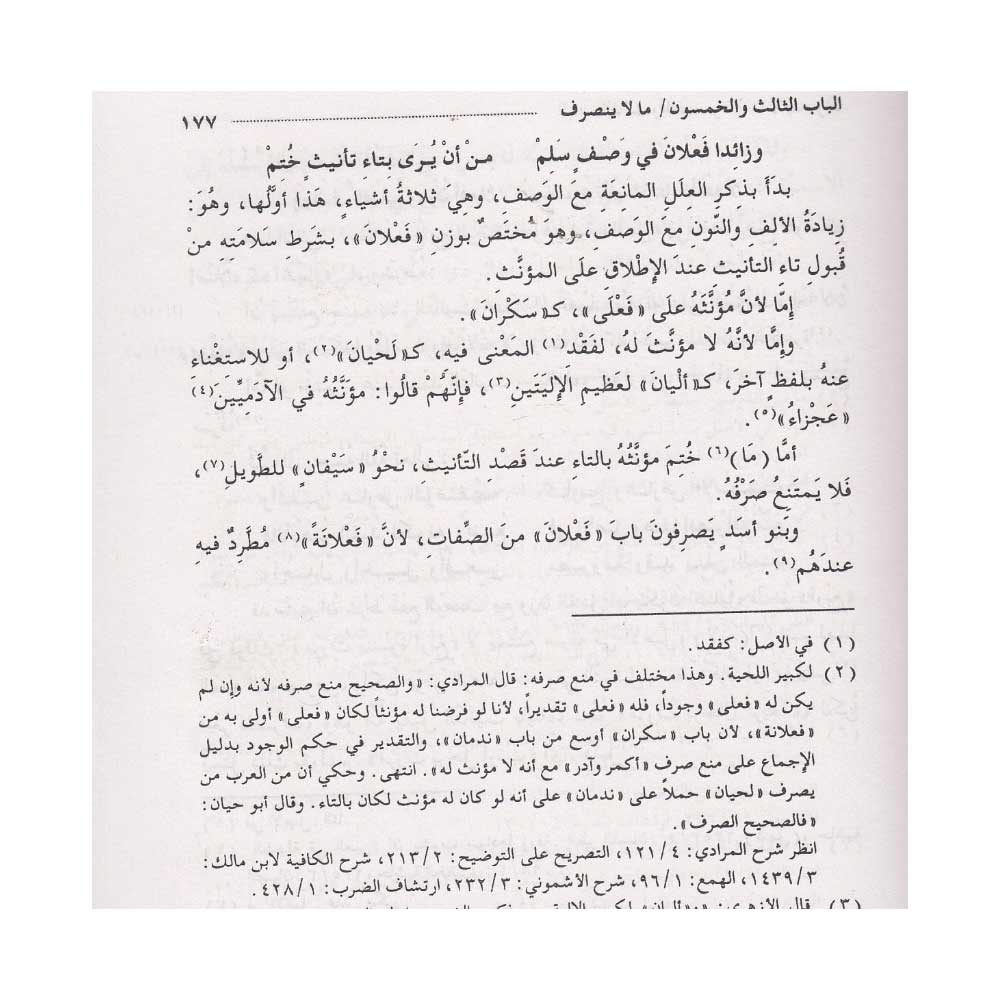 الباب الثالث والخمسون/ ما لا ينصرف ١٧٧
وزائدا فَعْلانَ في وَصْفٍ سَلِمْ مِنْ أنْ يُرَى بِتاءِ تأنيثٍ خُتِمْ
بدَأَ بذِكرِ العلَلِ المانِعَةِ معَ الوَصفِ، وهِيَ ثلاثةُ أشياءٍ، هَذا أوَّلُها، وهُوَ:
زِيادَةُ الألِفِ والنُّونِ معَ الوَصفِ، وهوَ مُختَصٌ بوزنِ «فَعْلانَ»، بشَرطِ سَلامَتِهِ مِنْ
قُبولِ تاءِ التأنيثِ عندَ الإطْلاقِ علَى المؤنَّثِ.
إمَّا لأنَّ مُؤنَّثَهُ علَى «فَعْلَى»، كـ«سَكْرانَ».
وإمَّا لأنَّهُ لا مؤنَّثَ لهُ، لفَقْدِ(١) المَعْنى فيهِ، كـ«لَحْيانَ»(٢)، أو للاستغْناءِ
عنهُ بلفظٍ آخرَ، كـ«ألْيانَ» لعَظيمِ الإليَتَينِ(٣)، فإنَّهُمْ قالُوا: مؤنَّثُه في الآدَميِّينَ(٤)
«عَجْزاءُ»(٥).
أمَّا (مَا)(٦) خُتِمَ مؤنَّثُهُ بالتاءِ عندَ قَصْدِ التّأنيثِ، نحْوُ «سَيْفانٍ» للطَّويلِ(٧)،
فَلا يَمتَنِعُ صَرْفُهُ.
وبَنو أسَدٍ يَصرِفونَ بابَ «فَعْلانَ» منَ الصِّفاتِ، لأنَّ «فَعْلانَةً»(٨) مُطَّرِدٌ فيهِ
عندَهُم(٩).
(١) في الأصل: كفقد.
(٢) لكبير اللحية. وهذا مختلف في منع صرفه: قال المرادي: «والصحيح منع صرفه لأنه وإن لم
يكن له «فعلى» وجوداً، فله «فعلى» تقديراً، لأنا لو فرضنا له مؤنثاً لكان «فعلى» أولى به من
«فعلانة»، لأن باب «سكران» أوسع من باب «ندمان»، والتقدير في حكم الوجود بدليل
الإجماع على منع صرف «أكمر وآدر» مع أنه لا مؤنث له». انتهى. وحكي أن من العرب من
يصرف «لحيان» حملاً على «ندمان» على أنه لو كان له مؤنث لكان بالتاء. وقال أبو حيان:
«فالصحيح الصرف».
انظر شرح المرادي: ٤/١٢١، التصريح على التوضيح: ٢/٢١٣، شرح الكافية لابن مالك:
٣/١٤٣٩، الهمع: ١/٩٦، شرح الأشموني: ٣/٢٣٢، ارتشاف الضرب: ١/٤٢٨.
(٣) قال الأزهري: